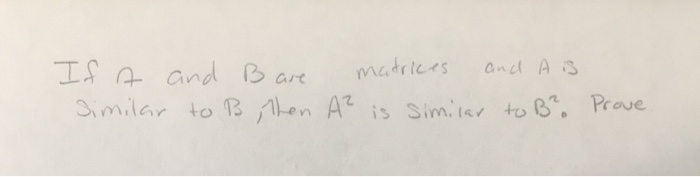 If A and B are matrices and A is
Similar to B, then A² is similar to B². Prove